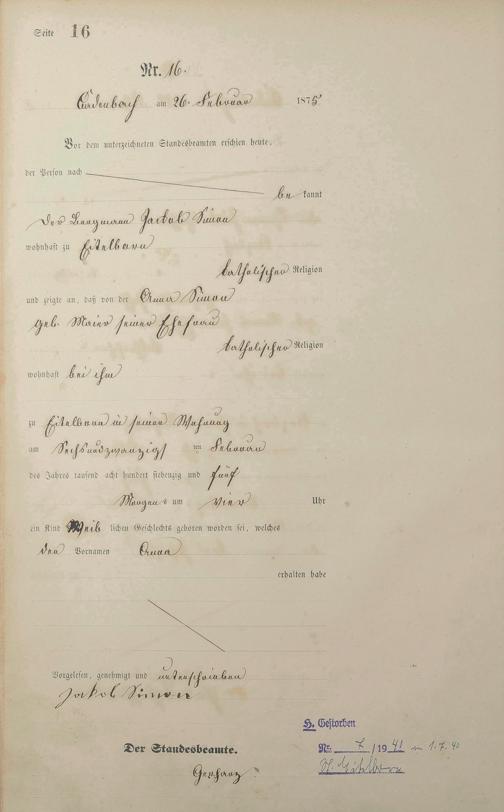 Seite 16
Nr. 16.
Cadenbach am 26. Februar 1875
Vor dem unterzeichneten Standesbeamten erschien heute,
der Person nach
be kannt
der Bergmann Jackob Simon
wohnhaft zu Eitelborn
katholischer Religion
und zeigte an, daß von der Anna Simon
geb. Maier seiner Ehefrau
katholischer Religion
wohnhaft bei ihm
zu Eitelborn in seiner Wohnung
am Sechsundzwanzigst im Februar
des Jahres tausend acht hundert siebenzig und fünf
Morgens um vier Uhr
ein Kind Weib lichen Geschlechts geboren worden sei, welches
den Vornamen Anna
erhalten habe
Vorgelesen, genehmigt und unterschrieben
Jakob Simon
Der Standesbeamte.
H. Gestorben
Nr. 7 /1941
St. Eitelborn